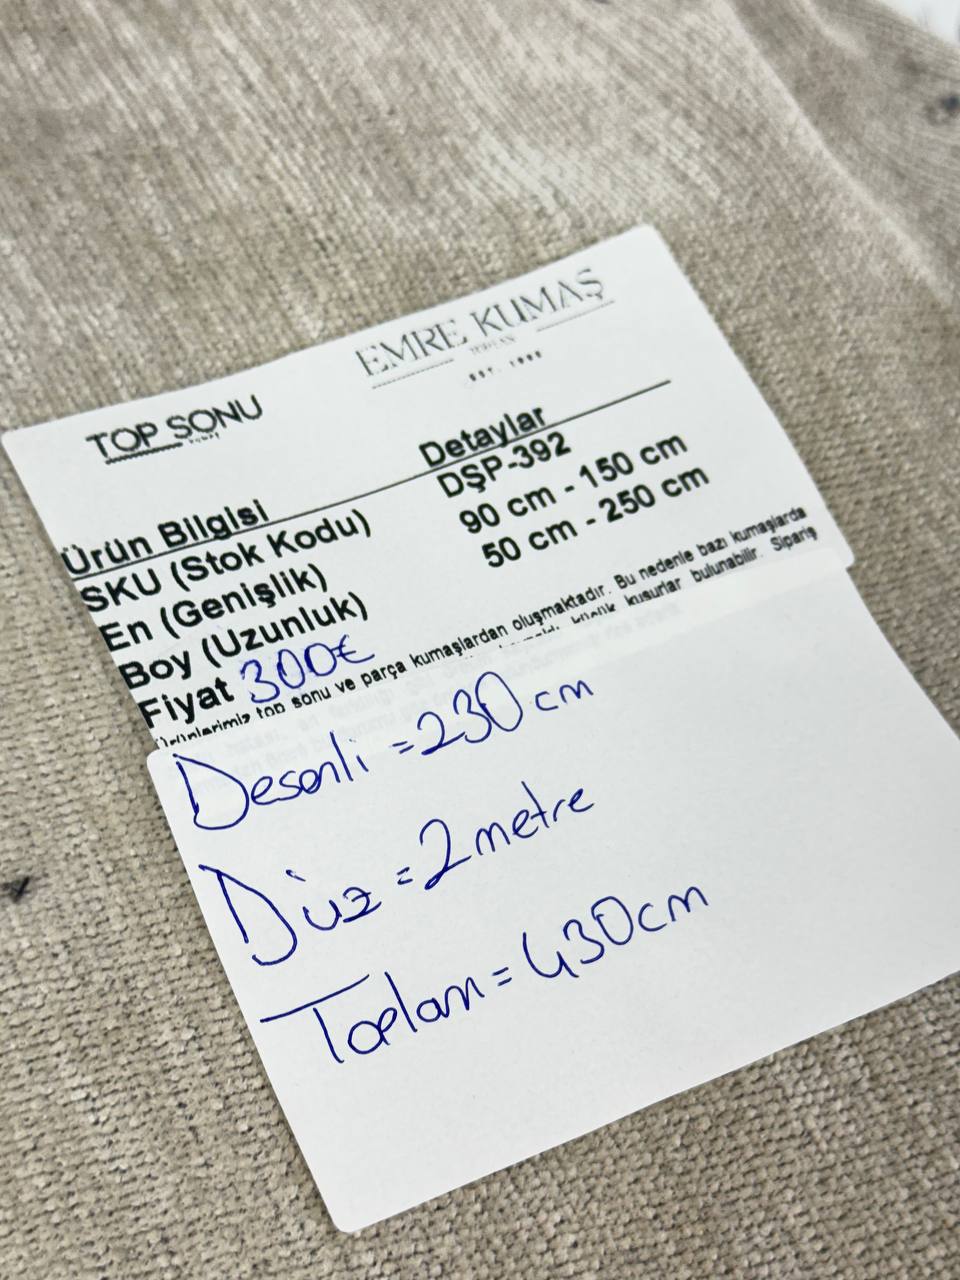 TOP SONU
EMRE KUMAŞ
EST. 1992
Ürün Bilgisi Detaylar
SKU (Stok Kodu) DŞP-392
En (Genişlik) 90 cm - 150 cm
Boy (Uzunluk) 50 cm - 250 cm
Fiyat 300€
Ürünlerimiz top sonu ve parça kumaşlardan oluşmaktadır. Bu nedenle bazı kumaşlarda
küçük kusurlar bulunabilir. Sipariş
Desenli = 230 cm
Düz = 2 metre
Toplam = 430 cm